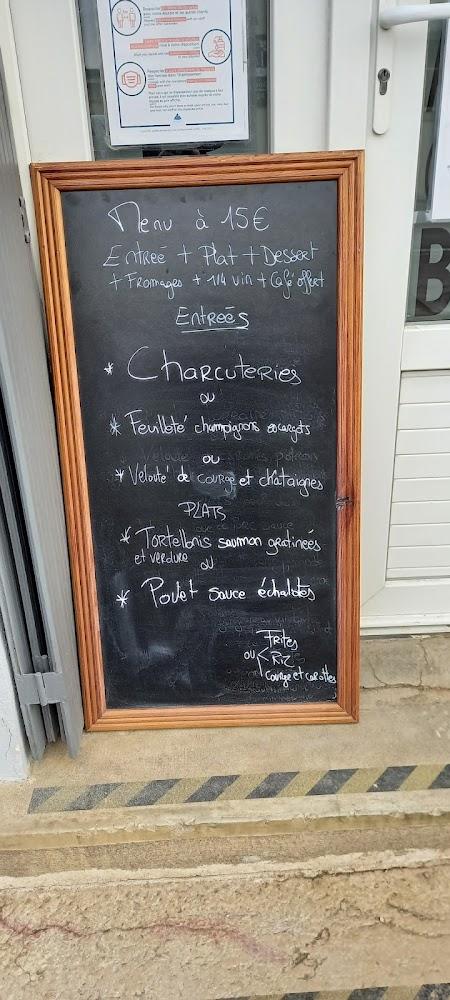 Menu à 15€
Entreé + Plat + Dessert
+ Fromages + 1/4 vin + Café offert
Entreés
* Charcuteries
ou
* Feuilleté champignons escargots
ou
* Velouté de courge et chataignes
PLATS
* Tortellonis saumon gratineés
et verdure
ou
* Poulet sauce échalotes
Frites
ou < Riz
courge et carottes
B